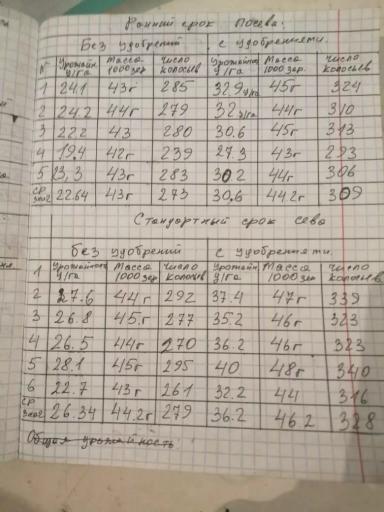 Ранний срок посева.
Без удобрений с удобрениями.
№ Урожайн. ц/га Масса 1000 зер. Число колосьев Урожайн ц/га Масса 1000 зер. Число колосьев
1 24.1 43г 285 32.9 ц/га 45г 324
2 24.2 44г 279 32 ц/га 44г 310
3 22.2 43 280 30.6 45г 313
4 19.4 42г 239 27.3 43г 293
5 23,3 43г 283 30.2 44г 306
ср знач 22.64 43г 273 30.6 44.2г 309
Стандартный срок сева
без удобрений с удобрениями.
1 Урожайность ц/га Масса 1000 зер Число колосьев Урожайн ц/га Масса 1000 зер. Число колосьев
2 27.6 44г 292 37.4 47г 339
3 26.8 45г 277 35.2 46г 323
4 26.5 44г 270 36.2 46г 323
5 28.1 45г 295 40 48г 340
6 22.7 43г 261 32.2 44 316
ср знач 26.34 44.2г 279 36.2 46.2 328
Общая урожайность